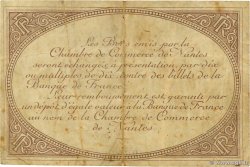 Les Bons émis par la
Chambre de Commerce de Nantes
seront échangés à présentation, par dix
ou multiples de dix, contre des billets de la
Banque de France.
Leur remboursement est garanti par
un dépôt d'égale valeur à la Banque de France
au nom de la Chambre de Commerce
de Nantes